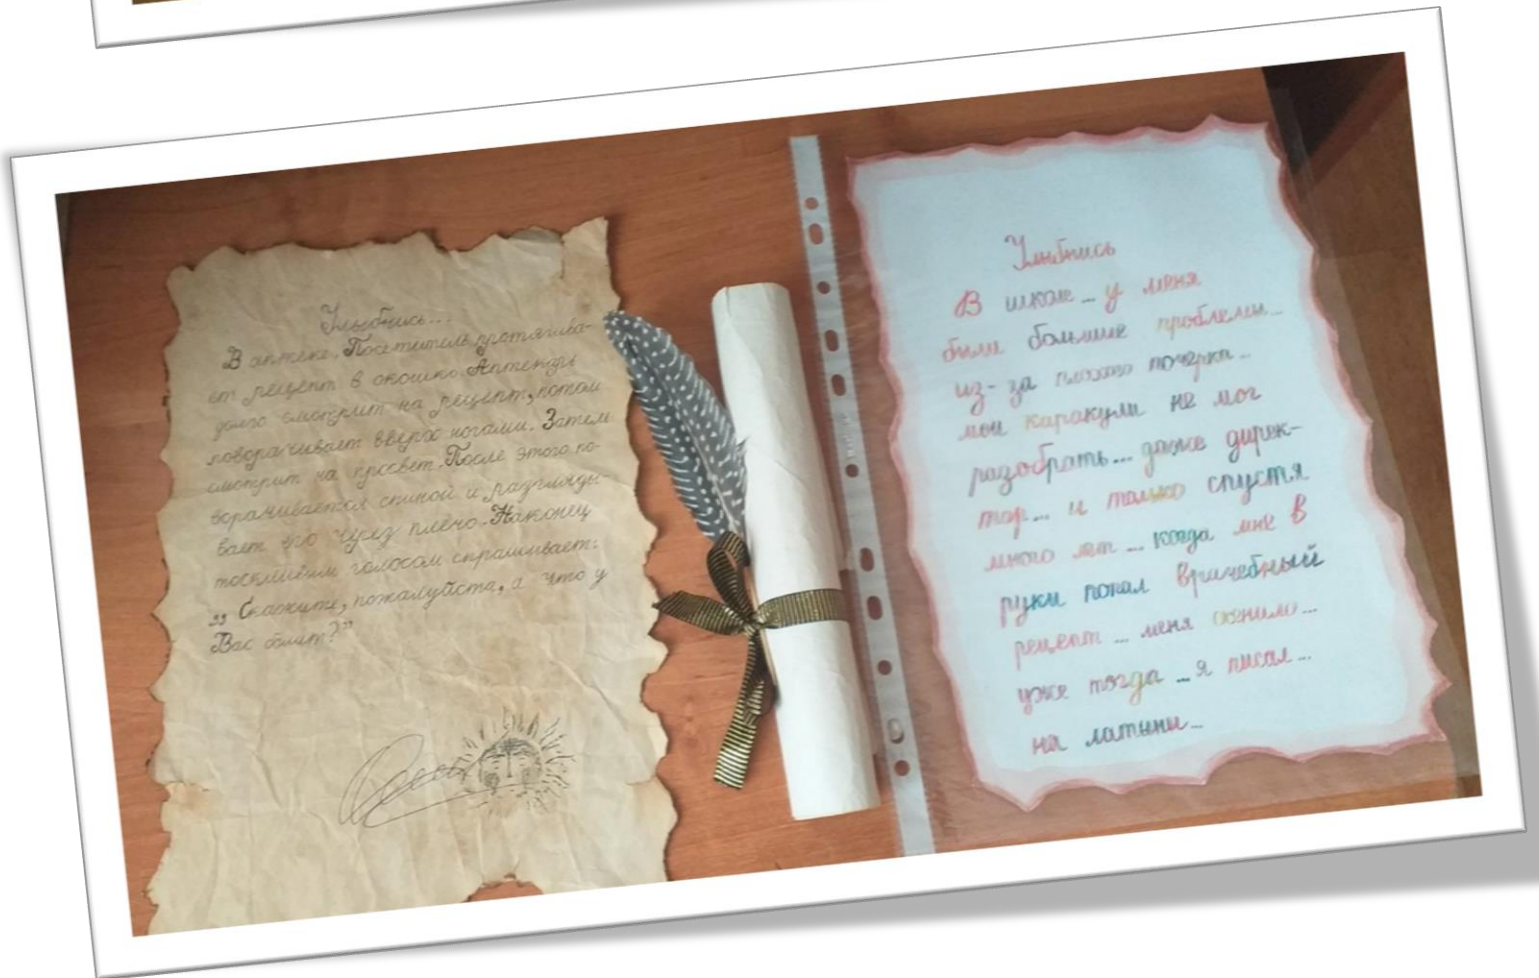 Улыбнись...
В аптеке. Посетитель протягива-
ет рецепт в окошко. Аптекарь
долго смотрит на рецепт, потом
поворачивает вверх ногами. Затем
смотрит на просвет. После этого по-
ворачивается спиной и разгляды-
вает его через плечо. Наконец
тоскливым голосом спрашивает:
„Скажите, пожалуйста, а что у
Вас болит?"
Улыбнись
В школе... у меня
были большие проблемы...
из-за плохого почерка...
мои каракули не мог
разобрать... даже дирек-
тор... и только спустя
много лет... когда мне в
руки попал врачебный
рецепт... меня осенило...
уже тогда... я писал...
на латыни...